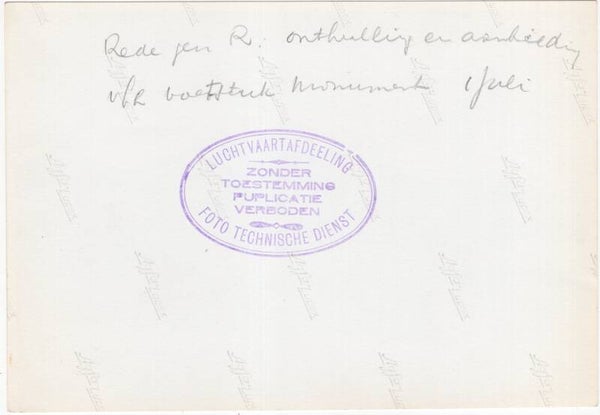 Rede gen R: onthulling en aanbieding
v/h voetstuk Monument 1 Juli
LUCHTVAARTAFDEELING
ZONDER
TOESTEMMING
PUPLICATIE
VERBODEN
FOTO TECHNISCHE DIENST